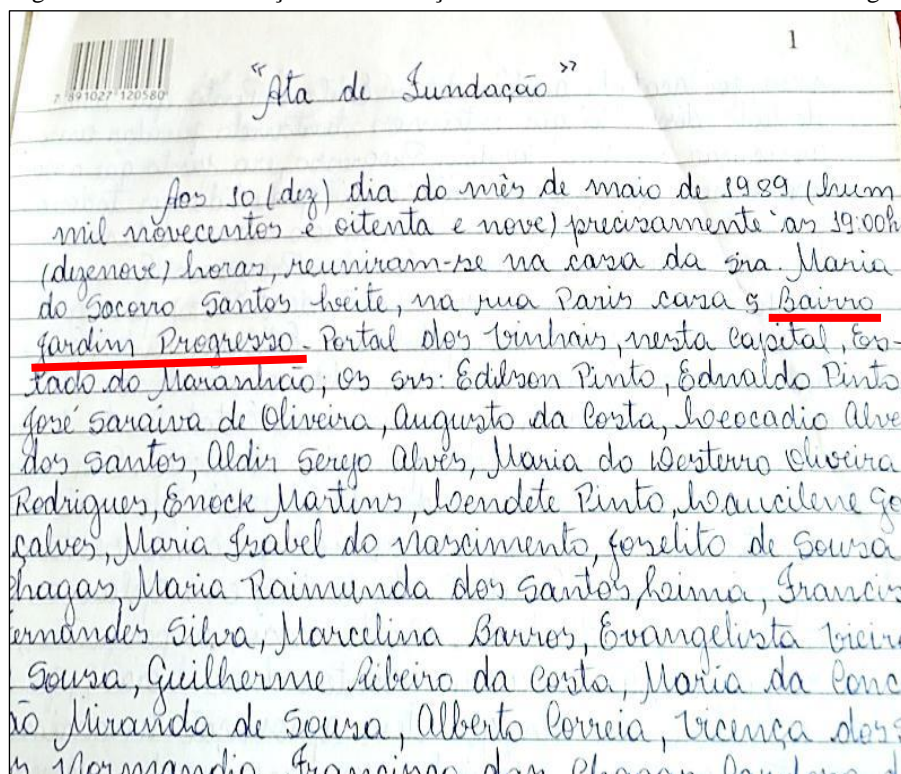 1
7 891027 120580
"Ata de Fundação"
Aos 10 (dez) dia do mês de maio de 1989 (hum
mil novecentos e oitenta e nove) precisamente às 19:00h
(dezenove) horas, reuniram-se na casa da sra. Maria
do Socorro Santos Leite, na rua Paris casa 5 Bairro
Jardim Progresso - Portal dos Vinhais, nesta Capital, Es-
tado do Maranhão; os srs: Edilson Pinto, Ednaldo Pinto
José Saraiva de Oliveira, Augusto da Costa, Leocadio Alve
dos Santos, Aldir Serejo Alves, Maria do Desterro Oliveira
Rodrigues, Enock Martins, Lendete Pinto, Laucilene Go
çalves, Maria Isabel do Nascimento, Joselito de Sousa
Chagas, Maria Raimunda dos Santos Lima, Francis
ernandes Silva, Marcelina Barros, Evangelista Vieir
Sousa, Guilherme Ribeiro da Costa, Maria da Conc
ão Miranda de Sousa, Alberto Correia, Vicença dos S
Normandia Francisca das Chagas